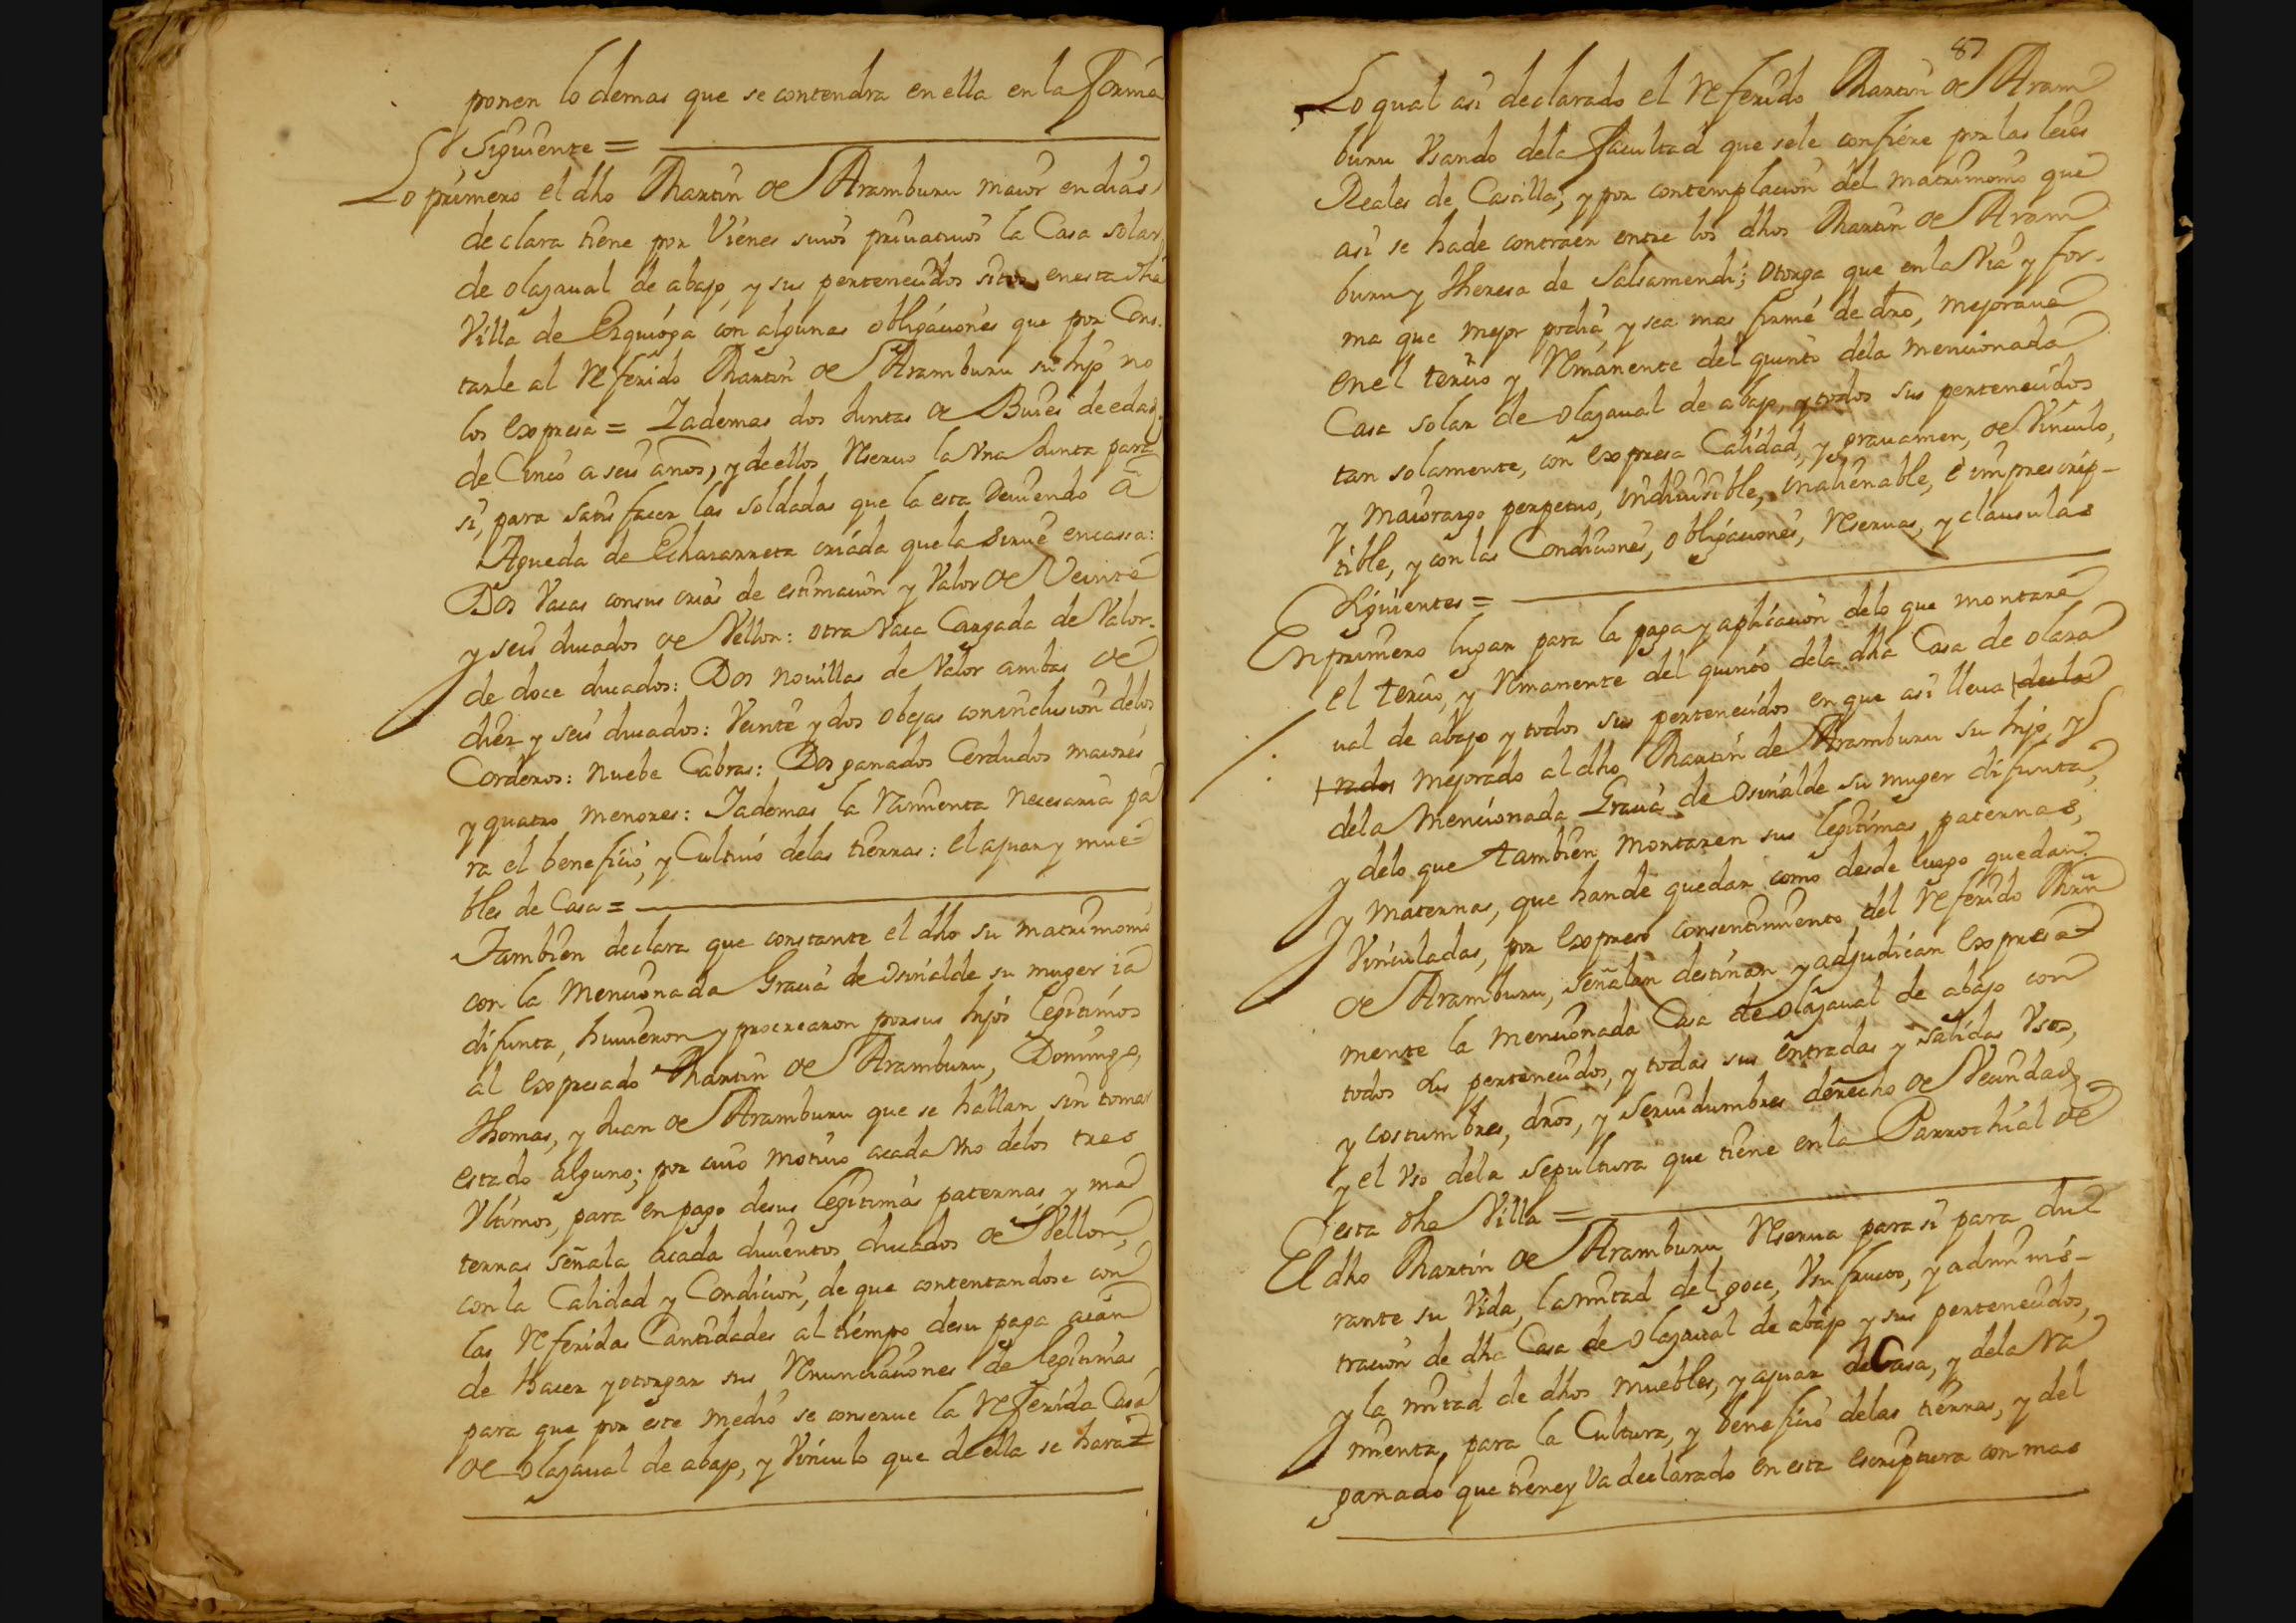 ponen lo demas que se contendra en ella en la forma
Siguiente =
Lo primero el dho Martin de Aramburu maior en dias,
declara tiene por Vienes suios priuatiuos la Casa solar
de olazaual de abajo, y sus pertenecidos sitos en esta dha
Villa de Ezquioga con algunas obligaciones que por Cons-
tarle al Referido Martin de Aramburu su hijo no
los expresa = Iademas dos Juntas de Buies de edad
de Cinco a seis años, y de ellos Reseruo la Vna Junta para
si, para satisfacer las soldadas que la esta Deuiendo â
Agueda de Echaiarreta criada que la sirue en cassa:
Dos Vacas con sus crias de estimacion y Valor de Veinte
y seis ducados de Vellon: otra Vaca Cargada de Valor
de doce ducados: Dos nouillas de Valor ambas de
diez y seis ducados: Veinte y dos obejas con inclusion delos
Corderos: nuebe Cabras: Dos ganados Cerdudos maiores
y quatro menores: Iademas la Ramienta necesaria pa
ra el beneficio, y Cultiuo delas tierras: el ajuar y mue-
bles de Casa =
Tambien declara que constante el dho su matrimonio
con la Mencionada Gracia de Osinalde su muger ia
difunta, huuieron y procrearon por sus hijos legitimos
al expresado Martin de Aramburu, Domingo,
Thomas, y Juan de Aramburu que se hallan sin tomar
estado alguno; por cuio motiuo acada Vno delos tres
Vltimos, para en pago desus legitimas paternas y ma
ternas señala acada ducientos ducados de Vellon,
con la Calidad y Condicion, de que contentandose con
las Referidas Cantidades al tiempo desu paga aian
de Hacer y otorgar sus Renunciaciones de legitimas
para que por este medio se conserue la Referida Casa
de olazaual de abajo, y Vinculo que de ella se hara =
87
Lo qual asi declarado el Referido Martin de Aram
buru Vsando dela facultad que sele confiere por las leies
Reales de Castilla; y por contemplacion del matrimonio que
asi se hade contraer entre los dhos Martin de Aram
buru y Theresa de Salsamendi; Otorga que en la Via y for-
ma que mejor podia, y sea mas firme de dro, mejoraua
en el tercio y Remanente del quinto dela mencionada
Casa solar de Olazaual de abajo, y todos sus pertenecidos
tan solamente, con expresa Calidad, y grauamen, de Vinculo,
y Maiorazgo perpetuo, indiuisible, inalienable, è imprescrip-
tible, y con las Condiciones, obligaciones, Reseruas, y clausulas
Siguientes =
En primero lugar para la paga y aplicacion delo que montare
el tercio, y Remanente del quinto dela dha Casa de olaza
ual de abajo y todos sus pertenecidos en que asi lleua
mejorado al dho Martin de Aramburu su hijo, y
dela Mencionada Gracia de Osinalde su muger difunta,
y delo que tambien montaren sus legitimas paternas,
y maternas, que hande quedar como desde luego quedan
Vinculadas, por expreso consentimiento del Referido Mrn
de Aramburu, señalan destinan y adjudican expresa
mente la mencionada Casa de olazaual de abajo con
todos sus pertenecidos, y todas sus entradas y salidas Vsos,
y costumbres, dros, y Seruidumbres derecho de Vecindad,
y el Vso dela sepultura que tiene en la Parrochial de
esta dha Villa =
El dho Martin de Aramburu Reserua para si para du
rante su Vida, la mitad del goce, Vsufructo, y adminis-
tracion de dha Casa de olazaual de abajo y sus pertenecidos,
y la mitad de dhos muebles, y ajuar de Casa, y dela Ra
mienta, para la Cultura, y beneficio delas tierras, y del
ganado que tiene y Va declarado en esta escriptura con mas